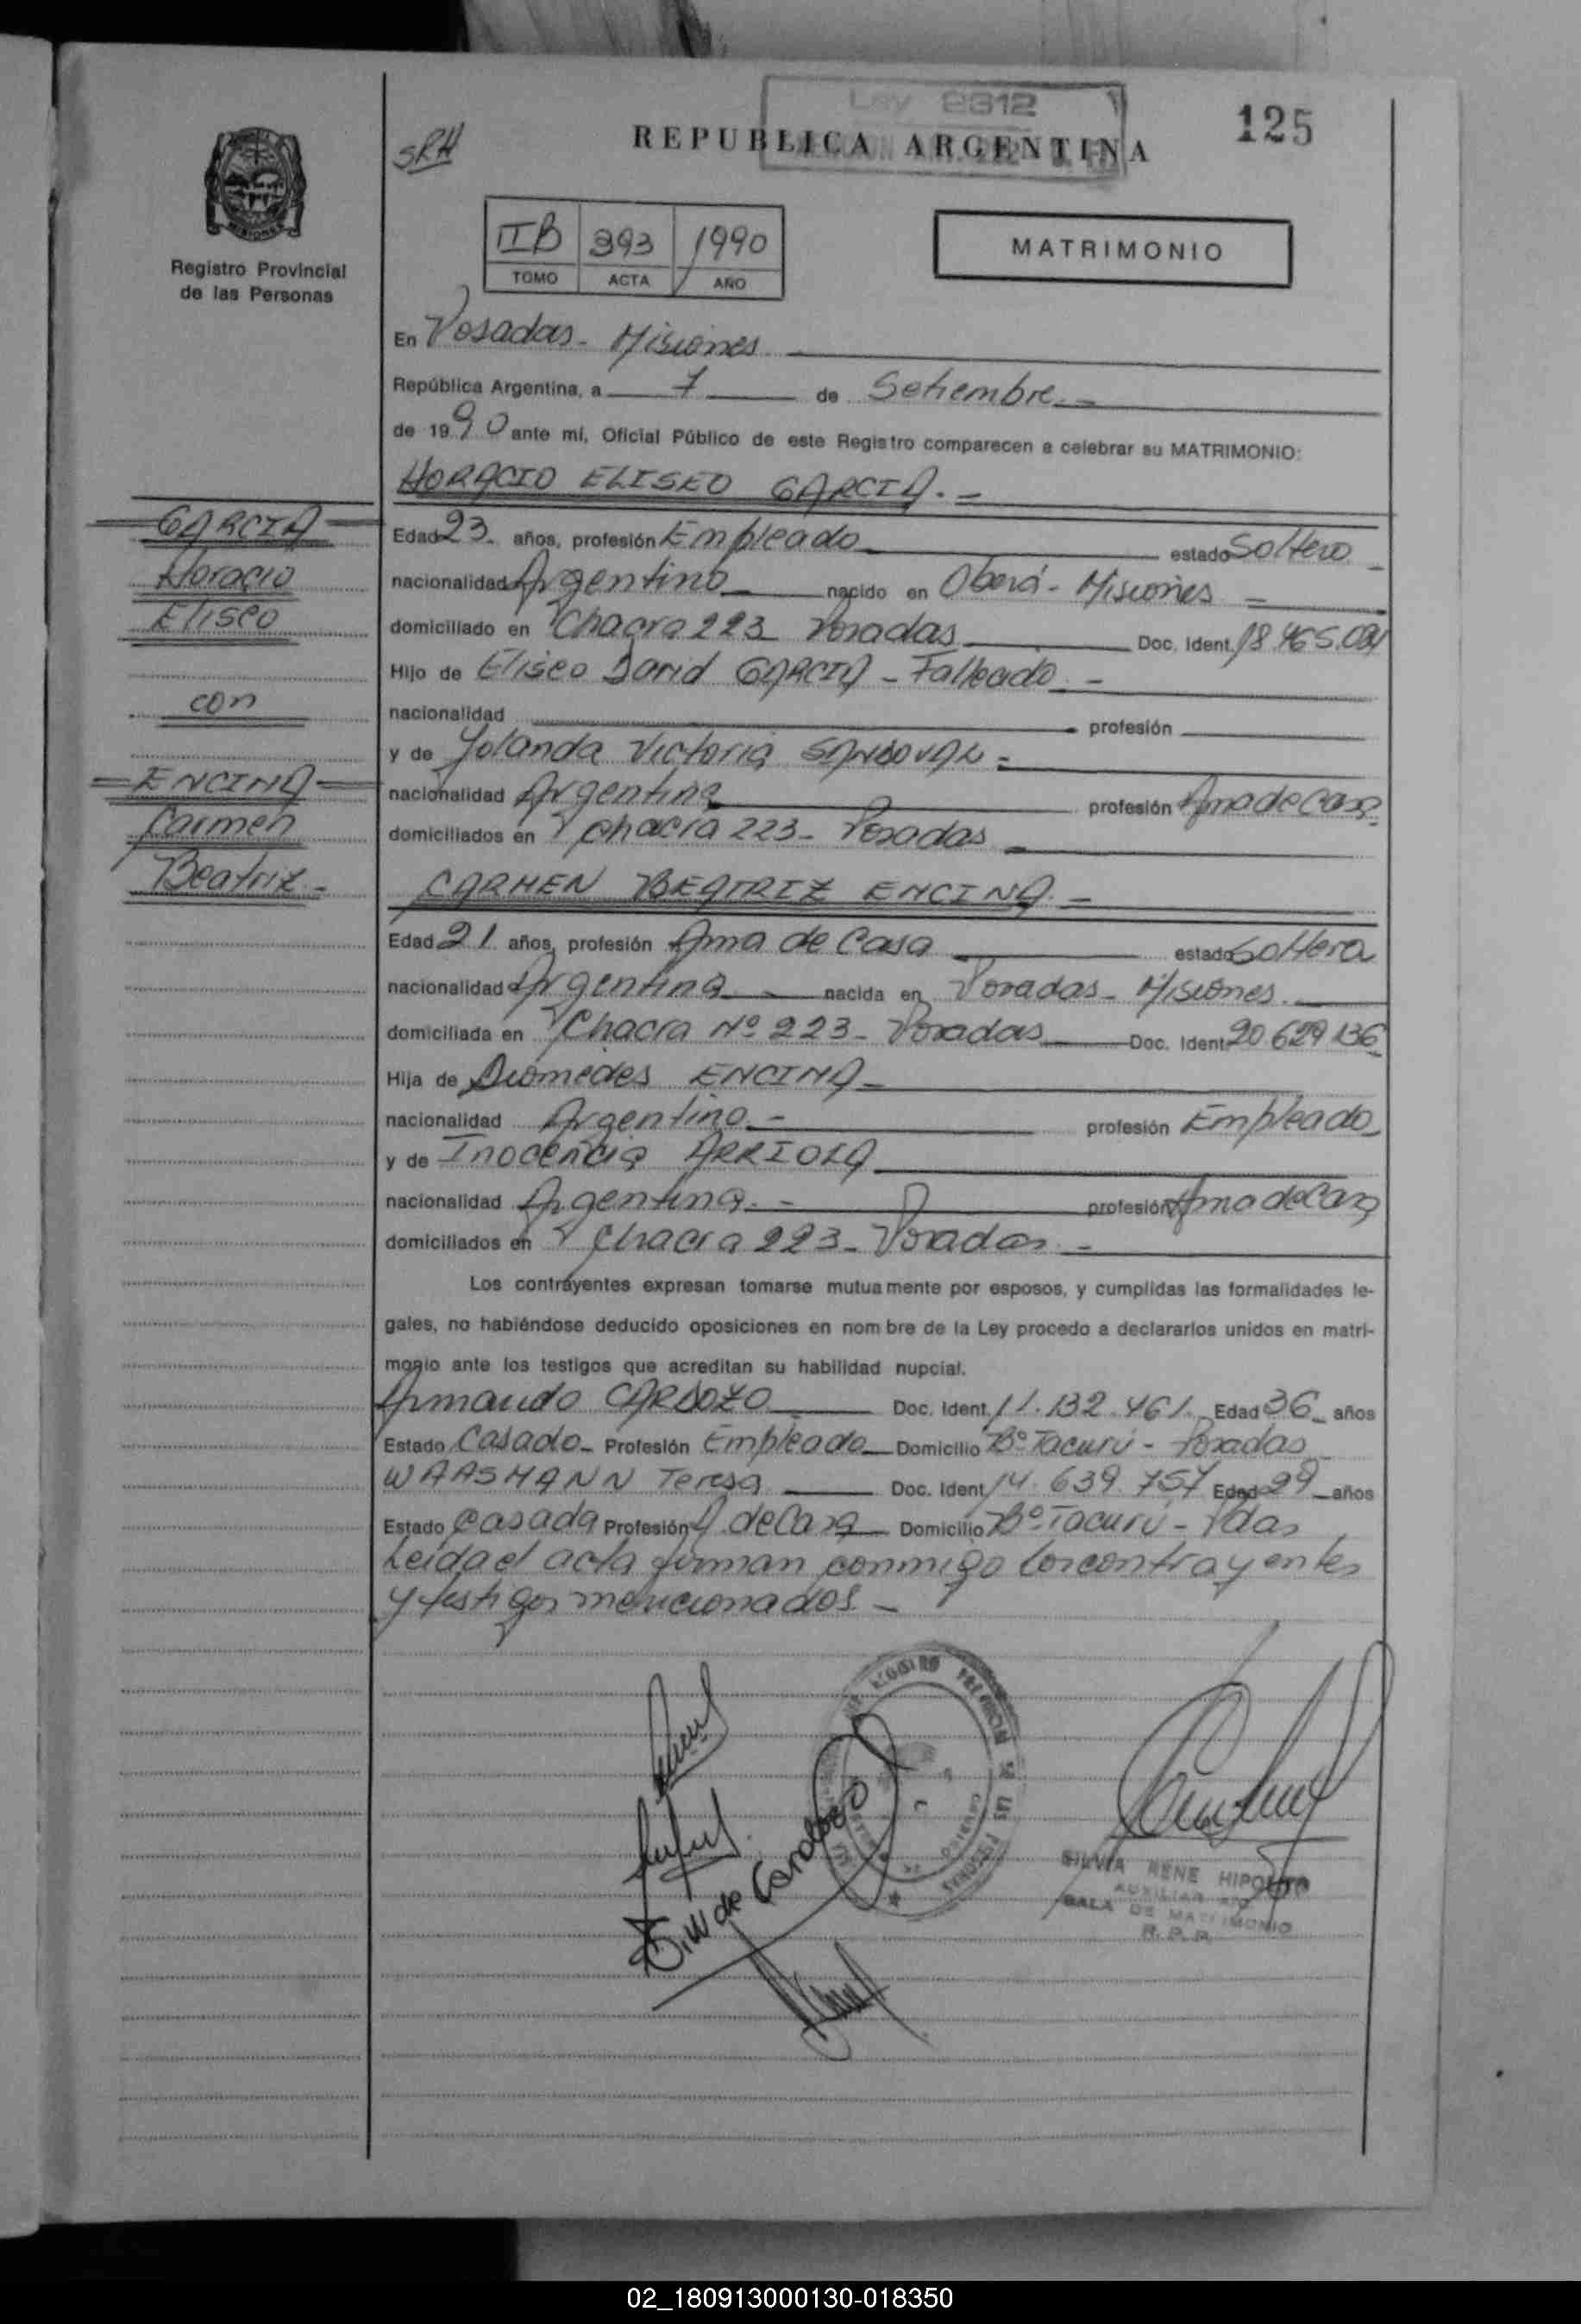 Ley 2312
125
SRH
REPUBLICA ARGENTINA
IIB 393 1990
TOMO ACTA AÑO
MATRIMONIO
Registro Provincial
de las Personas
En Posadas - Misiones
República Argentina, a 7 de Setiembre. -
de 1990 ante mí, Oficial Público de este Registro comparecen a celebrar su MATRIMONIO:
HORACIO ELISEO GARCIA. -
GARCIA
Horacio
Eliseo
con
ENCINA
Carmen
Beatriz -
Edad 23. años, profesión Empleado estado Soltero -
nacionalidad Argentino nacido en Oberá - Misiones -
domiciliado en Chacra 223 Posadas Doc. Ident. 18.465.091
Hijo de Eliseo David GARCIA - Fallecido. -
nacionalidad profesión
y de Yolanda Victoria SANDOVAL -
nacionalidad Argentina profesión Ama de Casa
domiciliados en Chacra 223 - Posadas -
CARMEN BEATRIZ ENCINA. -
Edad 21 años, profesión Ama de Casa estado Soltera
nacionalidad Argentina - nacida en Posadas - Misiones.
domiciliada en Chacra Nº 223 - Posadas Doc. Ident. 20.629.136
Hija de Diomedes ENCINA -
nacionalidad Argentino. - profesión Empleado
y de Inocencia ARRIOLA
nacionalidad Argentina. - profesión Ama de Casa
domiciliados en Chacra 223 - Posadas -
Los contrayentes expresan tomarse mutuamente por esposos, y cumplidas las formalidades le-
gales, no habiéndose deducido oposiciones en nombre de la Ley procedo a declararlos unidos en matri-
monio ante los testigos que acreditan su habilidad nupcial.
Armando CARDOZO Doc. Ident. 11.132.461. Edad 36 años
Estado Casado - Profesión Empleado Domicilio Bº Tacurú - Posadas
WAASMANN Teresa Doc. Ident. 14.639.757 Edad 29 años
Estado Casada Profesión A. de Casa Domicilio Bº Tacurú - Pdas
Leida el acta firman conmigo los contrayentes
y testigos mencionados. -
T. W. de Cardozo
SILVIA RENE HIPOLITO
AUXILIAR
SALA DE MATRIMONIO
R. P. P.
02_180913000130-018350